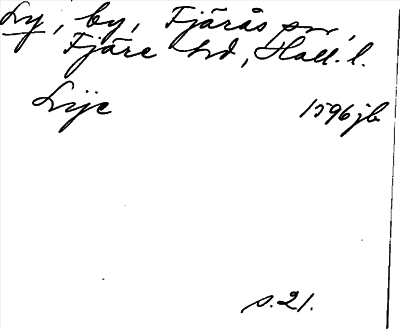 Ly, by, Fjärås sn,
Fjäre hd, Hall. l.
Lije 1596 jb
s. 21.